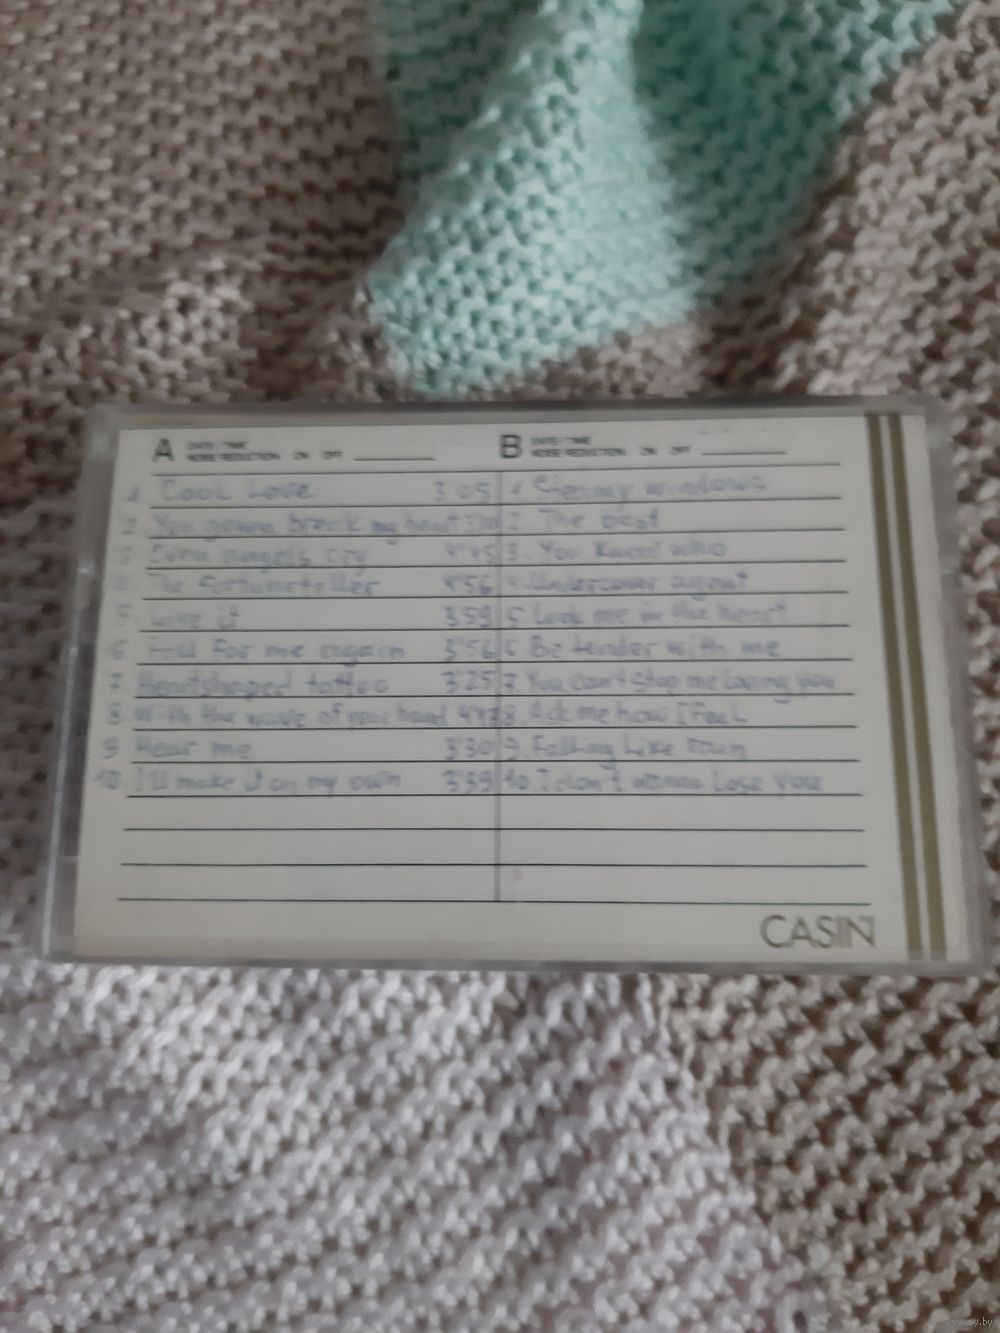 A DATE / TIME
NOISE REDUCTION ON OFF
1. Cool Love 3'05
2 You gonna break my heart
3 Even angels cry 4'45
The fortuneteller 4'56
5. Give it 3'59
6 Fall for me again 3'56
7 Heartshaped tattoo 3'25
8 With the wave of your hand
9 Hear me 3'30
10. I'll make it on my own 3'39
B DATE / TIME
NOISE REDUCTION ON OFF
1 Steamy windows
2. The best
3. You know who
4. Undercover agent
5 Look me in the heart
6 Be tender with me
7 You can't stop me loving you
8. Ask me how I feel
9. Falling like rain
10 I don't wanna lose you
CASIN
www.ay.by